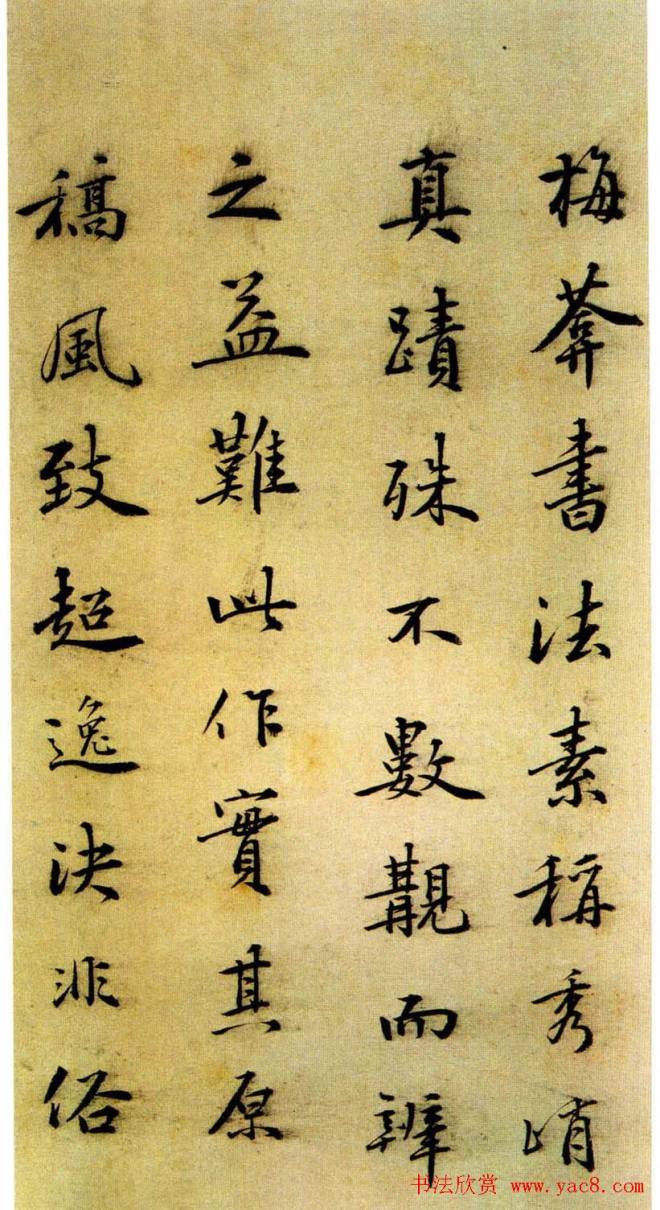 梅葊書法素稱秀峭
真蹟殊不數覯而辨
之益難此作實其原
稿風致超逸决非俗
书法欣赏 www.yac8.com